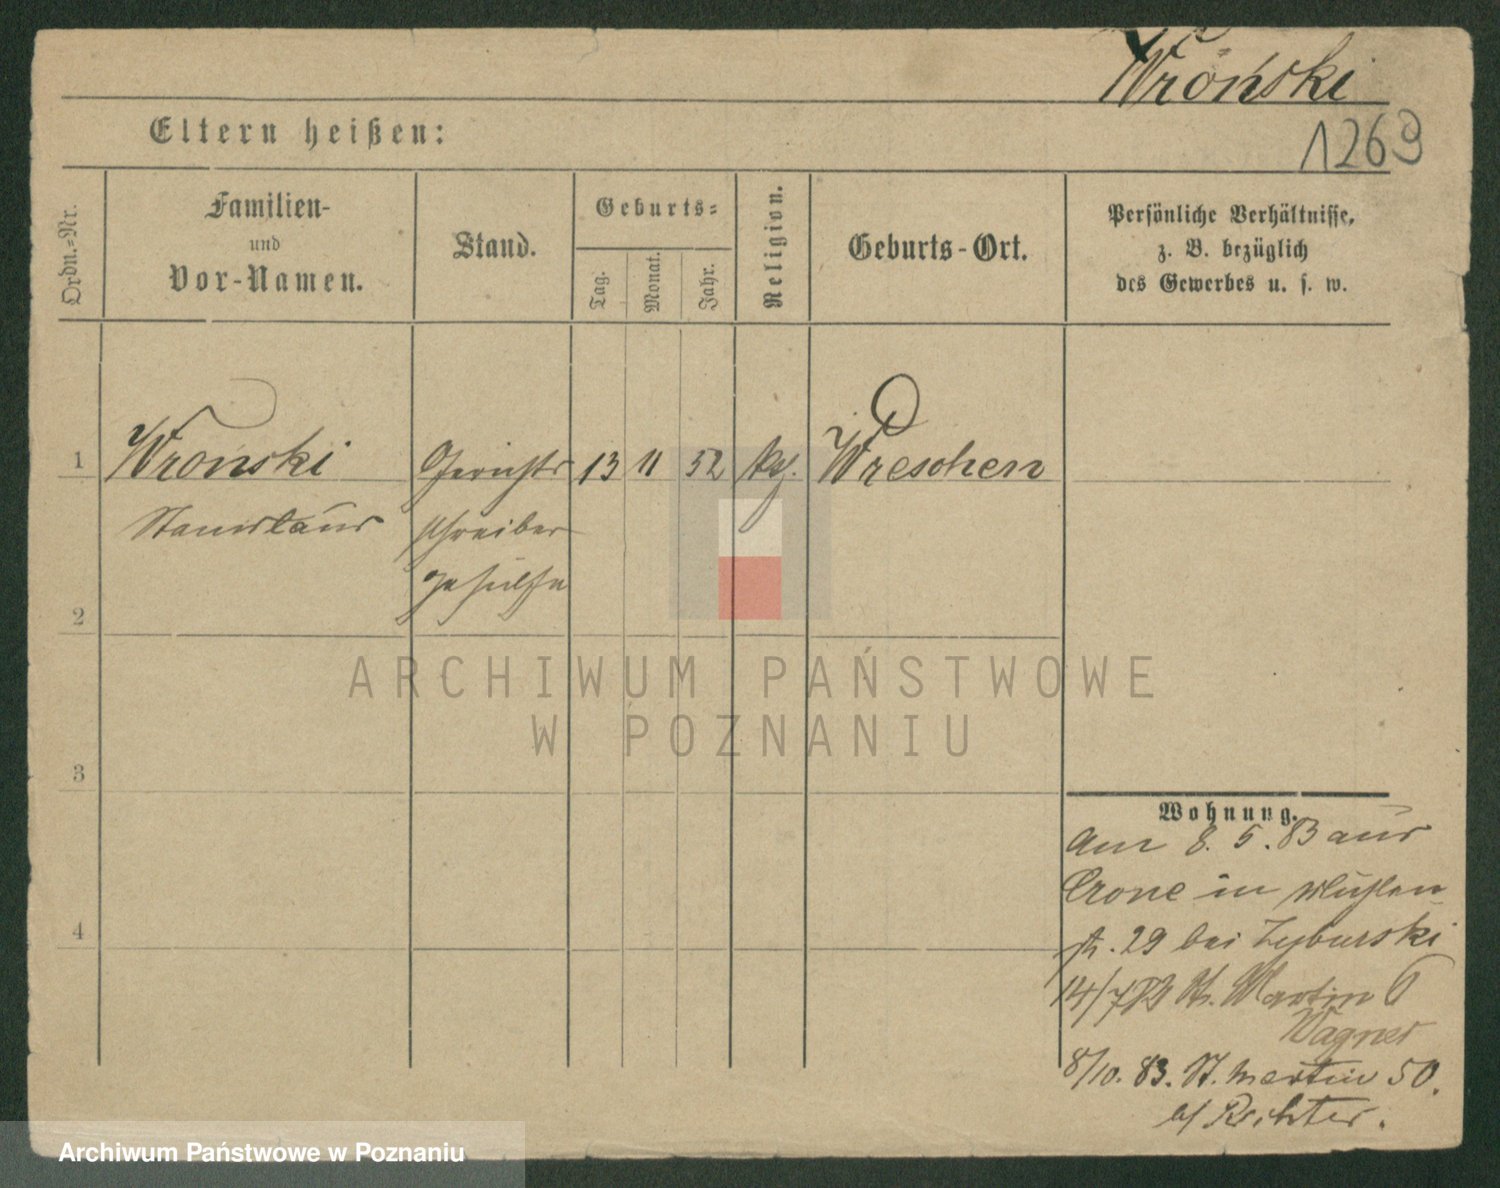 Wroński
1269
Eltern heißen:
Ordn.=Nr.
Familien-
und
Vor-Namen.
Stand.
Geburts=
Tag.
Monat.
Jahr.
Religion.
Geburts-Ort.
Persönliche Verhältnisse,
z. B. bezüglich
des Gewerbes u. s. w.
1 Wronski Gerichts 13 11 52 kg. Wreschen
Stanislaus schreiber
gehülfe
2
3
4
Wohnung.
Am 8. 5. 83 aus
Crone in Mühlen
str. 29 bei Zyburski
14/7 83 St. Martin 6
Wagner
8/10. 83. St. Martin 50.
b/ Richter.
ARCHIWUM PAŃSTWOWE
W POZNANIU
Archiwum Państwowe w Poznaniu